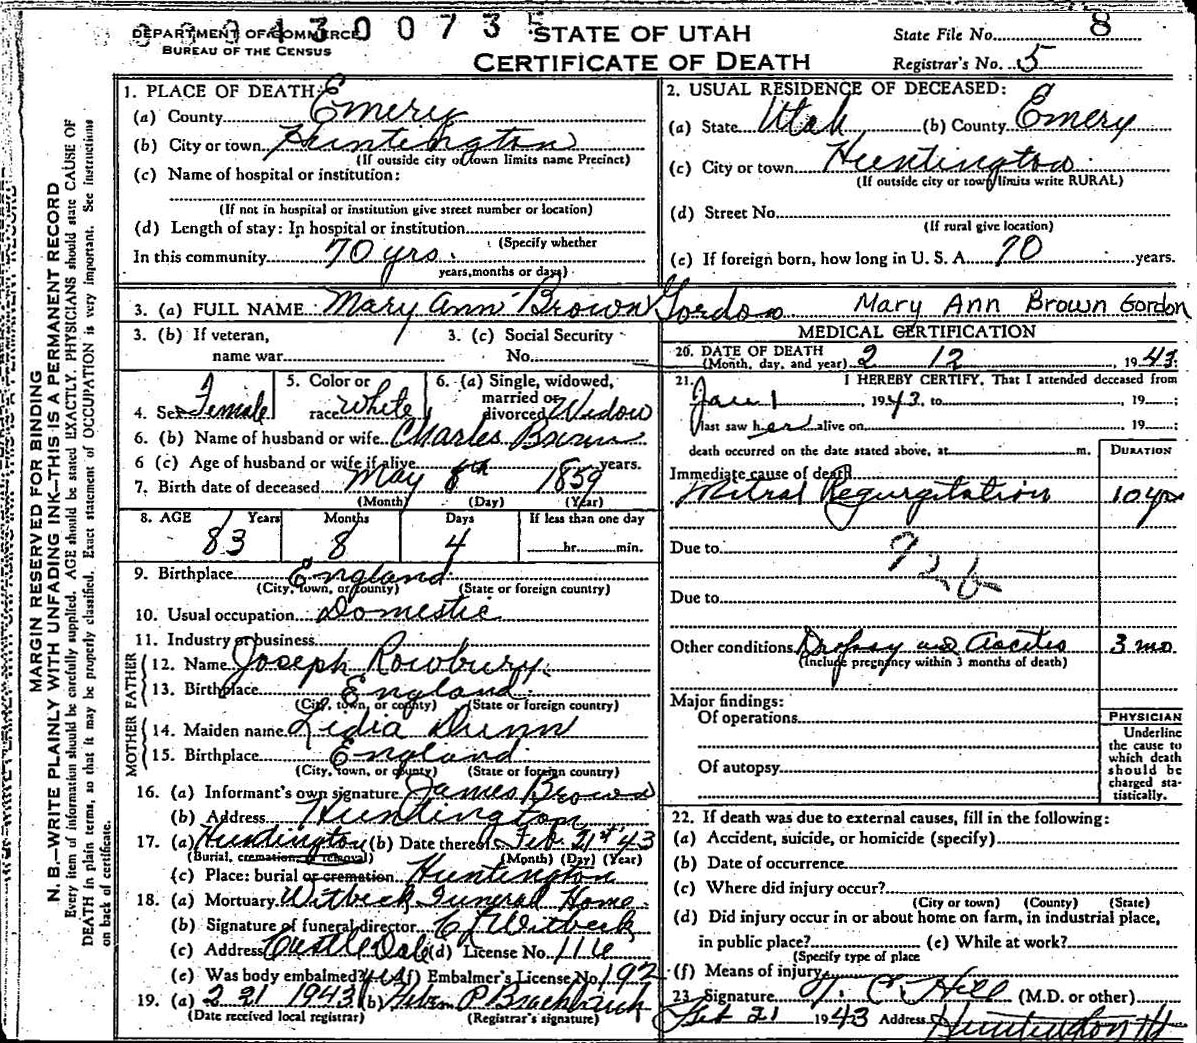 DEPARTMENT OF COMMERCE
BUREAU OF THE CENSUS
4300735
STATE OF UTAH
CERTIFICATE OF DEATH
State File No. 8
Registrar's No. 5
MARGIN RESERVED FOR BINDING
N. B.—WRITE PLAINLY WITH UNFADING INK—THIS IS A PERMANENT RECORD
Every item of information should be carefully supplied. AGE should be stated EXACTLY. PHYSICIANS should state CAUSE OF
DEATH in plain terms, so that it may be properly classified. Exact statement of OCCUPATION is very important. See instructions
on back of certificate.
1. PLACE OF DEATH:
(a) County Emery
(b) City or town Huntington
(If outside city or town limits name Precinct)
(c) Name of hospital or institution:
(If not in hospital or institution give street number or location)
(d) Length of stay: In hospital or institution
(Specify whether
In this community 70 yrs.
years, months or days)
2. USUAL RESIDENCE OF DECEASED:
(a) State Utah (b) County Emery
(c) City or town Huntington
(If outside city or town limits write RURAL)
(d) Street No.
(If rural give location)
(e) If foreign born, how long in U. S. A. 70 years.
3. (a) FULL NAME: Mary Ann Brown Gordon Mary Ann Brown Gordon
3. (b) If veteran,
name war
3. (c) Social Security
No.
4. Sex Female
5. Color or
race White
6. (a) Single, widowed,
married or
divorced Widow
6. (b) Name of husband or wife Charles Brown
6 (c) Age of husband or wife if alive years.
7. Birth date of deceased May 8th 1859
(Month) (Day) (Year)
8. AGE Years Months Days If less than one day
83 8 4 hr. min.
9. Birthplace England
(City, town, or county) (State or foreign country)
10. Usual occupation Domestic
11. Industry or business
FATHER
12. Name Joseph Rowbury
13. Birthplace England
(City, town, or county) (State or foreign country)
MOTHER
14. Maiden name Lidia Dunn
15. Birthplace England
(City, town, or county) (State or foreign country)
16. (a) Informant's own signature James Brown
(b) Address Huntington
17. (a) Huntington (b) Date thereof Feb. 21st 43
(Burial, cremation, or removal) (Month) (Day) (Year)
(c) Place: burial or cremation Huntington
18. (a) Mortuary Witbeck Funeral Home
(b) Signature of funeral director Witbeck
(c) Address Castle Dale (d) License No. 116
(e) Was body embalmed? yes (f) Embalmer's License No. 192
19. (a) 2 21 1943 (b)
(Date received local registrar) (Registrar's signature)
MEDICAL CERTIFICATION
20. DATE OF DEATH
(Month, day, and year) 2 12 1943
21. I HEREBY CERTIFY, That I attended deceased from
Jan 1, 1943, to , 19 ;
I last saw her alive on , 19 ;
death occurred on the date stated above, at m.
DURATION
Immediate cause of death
Mitral Regurgitation 10 yrs
Due to
92b
Due to
Other conditions Dropsy and Ascites 3 mo
(Include pregnancy within 3 months of death)
Major findings:
Of operations
Of autopsy
PHYSICIAN
Underline
the cause to
which death
should be
charged sta-
tistically.
22. If death was due to external causes, fill in the following:
(a) Accident, suicide, or homicide (specify)
(b) Date of occurrence
(c) Where did injury occur?
(City or town) (County) (State)
(d) Did injury occur in or about home on farm, in industrial place,
in public place? (e) While at work?
(Specify type of place
(f) Means of injury
23 Signature T. C. Hill (M.D. or other)
Feb 21 1943 Address Huntington Ut